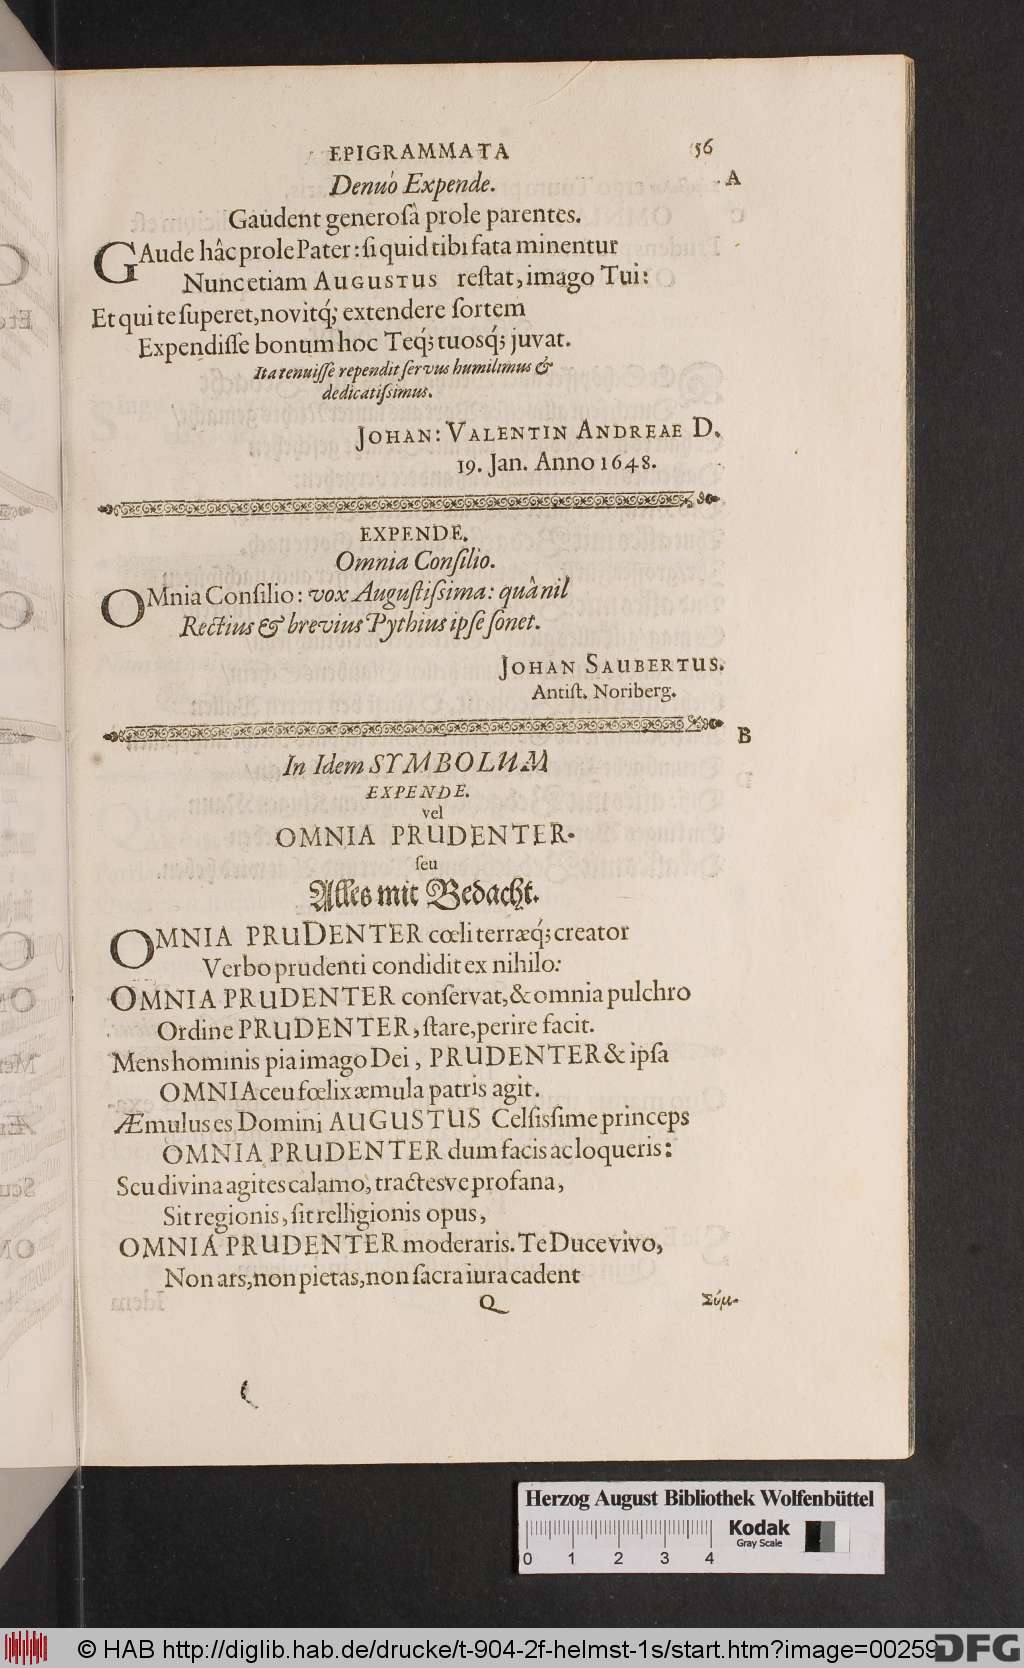 EPIGRAMMATA 56
Denuò Expende. A
Gaudent generosâ prole parentes.
GAude hâc prole Pater: si quid tibi fata minentur
Nunc etiam AUGUSTUS restat, imago Tui:
Et qui te superet, novitq́; extendere sortem
Expendisse bonum hoc Teq́; tuosq́; juvat.
Ita tenuisse rependit servus humilimus &
dedicatissimus.
JOHAN: VALENTIN ANDREAE D.
19. Jan. Anno 1648.
EXPENDE.
Omnia Consilio.
OMnia Consilio: vox Augustissima: quâ nil
Rectius & brevius Pythius ipse sonet.
JOHAN SAUBERTUS.
Antist. Noriberg.
B
In Idem SYMBOLUM
EXPENDE.
vel
OMNIA PRUDENTER.
seu
Alles mit Bedacht.
OMNIA PRUDENTER cœli terræq́; creator
Verbo prudenti condidit ex nihilo:
OMNIA PRUDENTER conservat, & omnia pulchro
Ordine PRUDENTER, stare, perire facit.
Mens hominis pia imago Dei, PRUDENTER & ipsa
OMNIA ceu fœlix æmula patris agit.
Æmulus es Domini AUGUSTUS Celsissime princeps
OMNIA PRUDENTER dum facis ac loqueris:
Seu divina agites calamo, tractesve profana,
Sit regionis, sit relligionis opus,
OMNIA PRUDENTER moderaris. Te Duce vivo,
Non ars, non pietas, non sacra iura cadent
Q Σύμ-
Herzog August Bibliothek Wolfenbüttel
Kodak
Gray Scale
0 1 2 3 4
© HAB http://diglib.hab.de/drucke/t-904-2f-helmst-1s/start.htm?image=00259
DFG